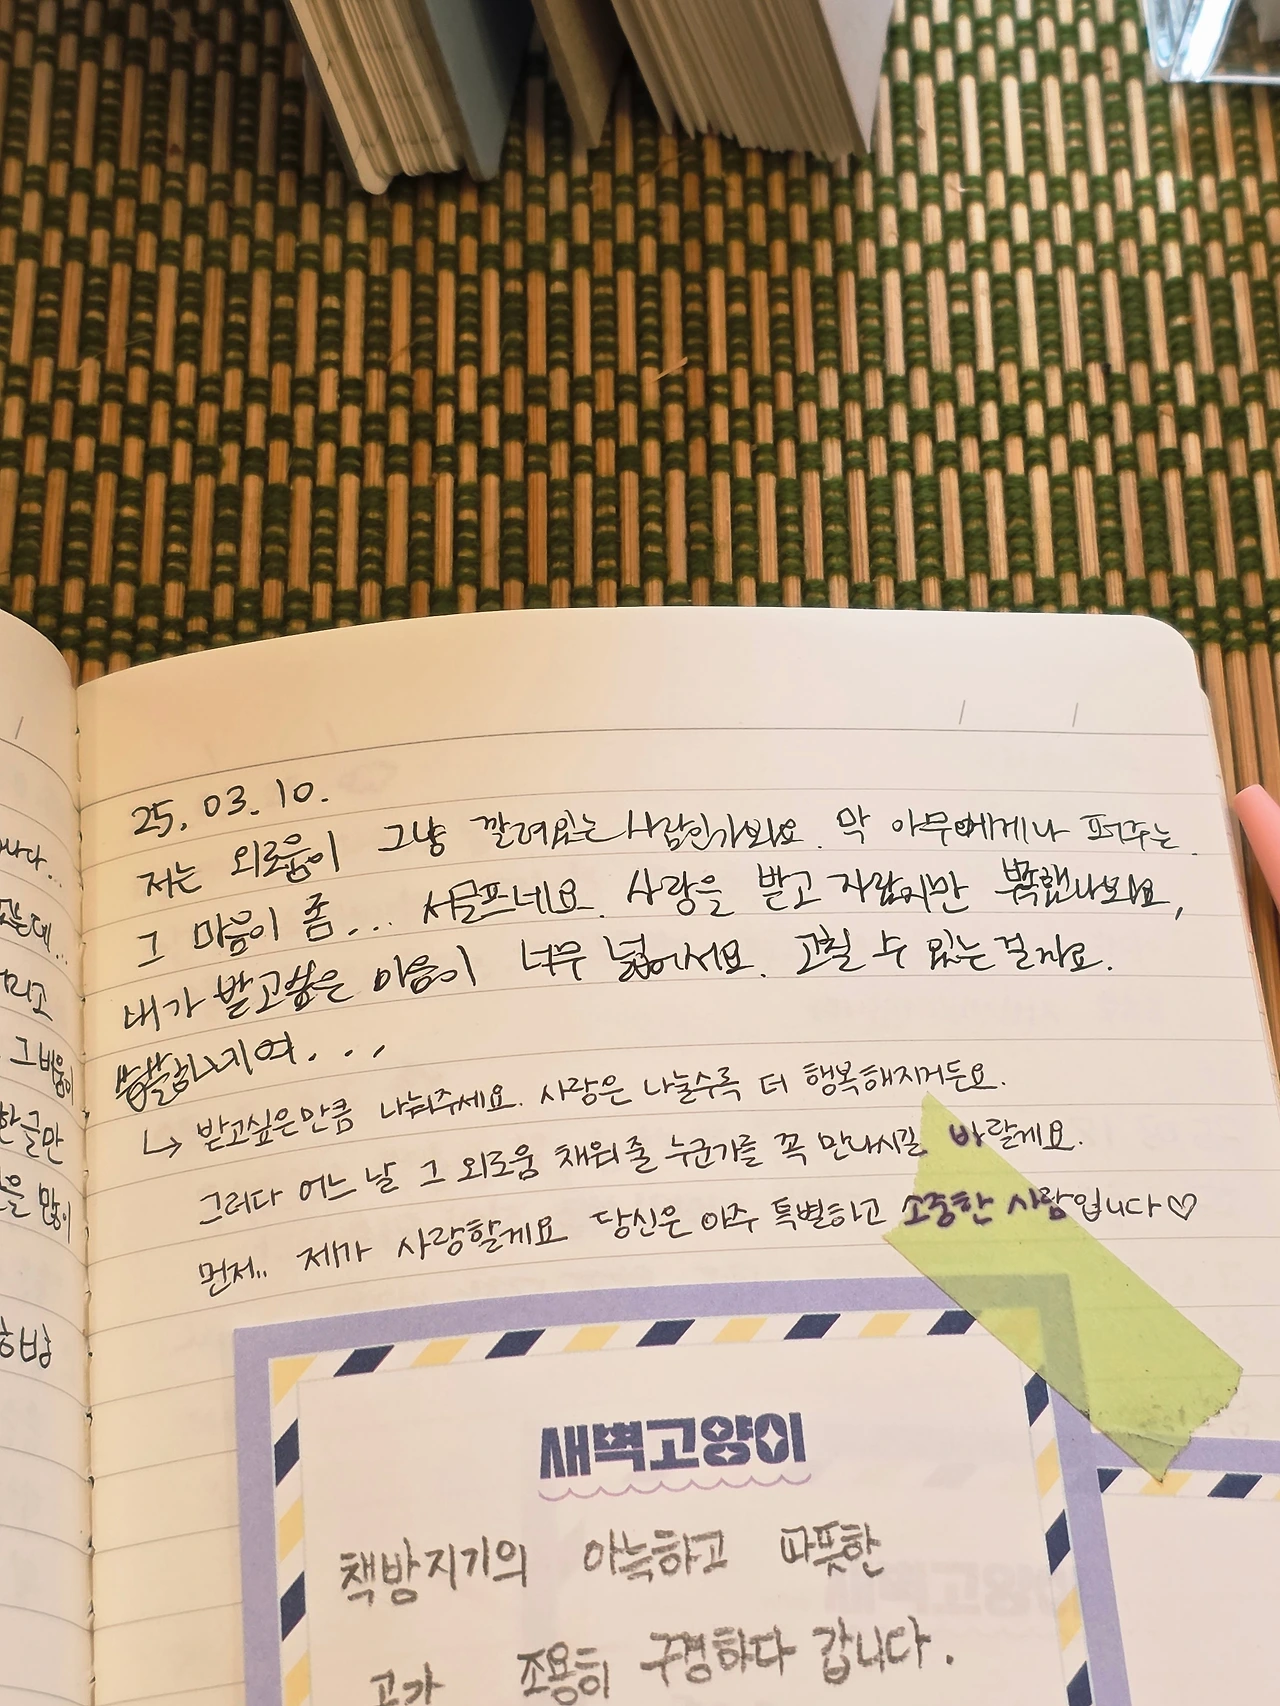 25. 03. 10.
저는 외로움이 그냥 깔려있는 사람인가봐요. 막 아무에게나 퍼주는
그 마음이 좀... 서글프네요. 사랑을 받고 자랐지만 부족했나봐요,
내가 받고싶은 마음이 너무 넓어서요. 고칠 수 있는걸까요.
씁쓸하네여...
↳ 받고싶은만큼 나눠주세요. 사랑은 나눌수록 더 행복해지거든요.
그러다 어느 날 그 외로움 채워줄 누군가를 꼭 만나시길 바랄게요.
먼저.. 제가 사랑할게요 당신은 아주 특별하고 소중한 사람입니다♡
새벽고양이
책방지기의 아늑하고 따뜻한
조용히 구경하다 갑니다.
그 벼움이
한글만